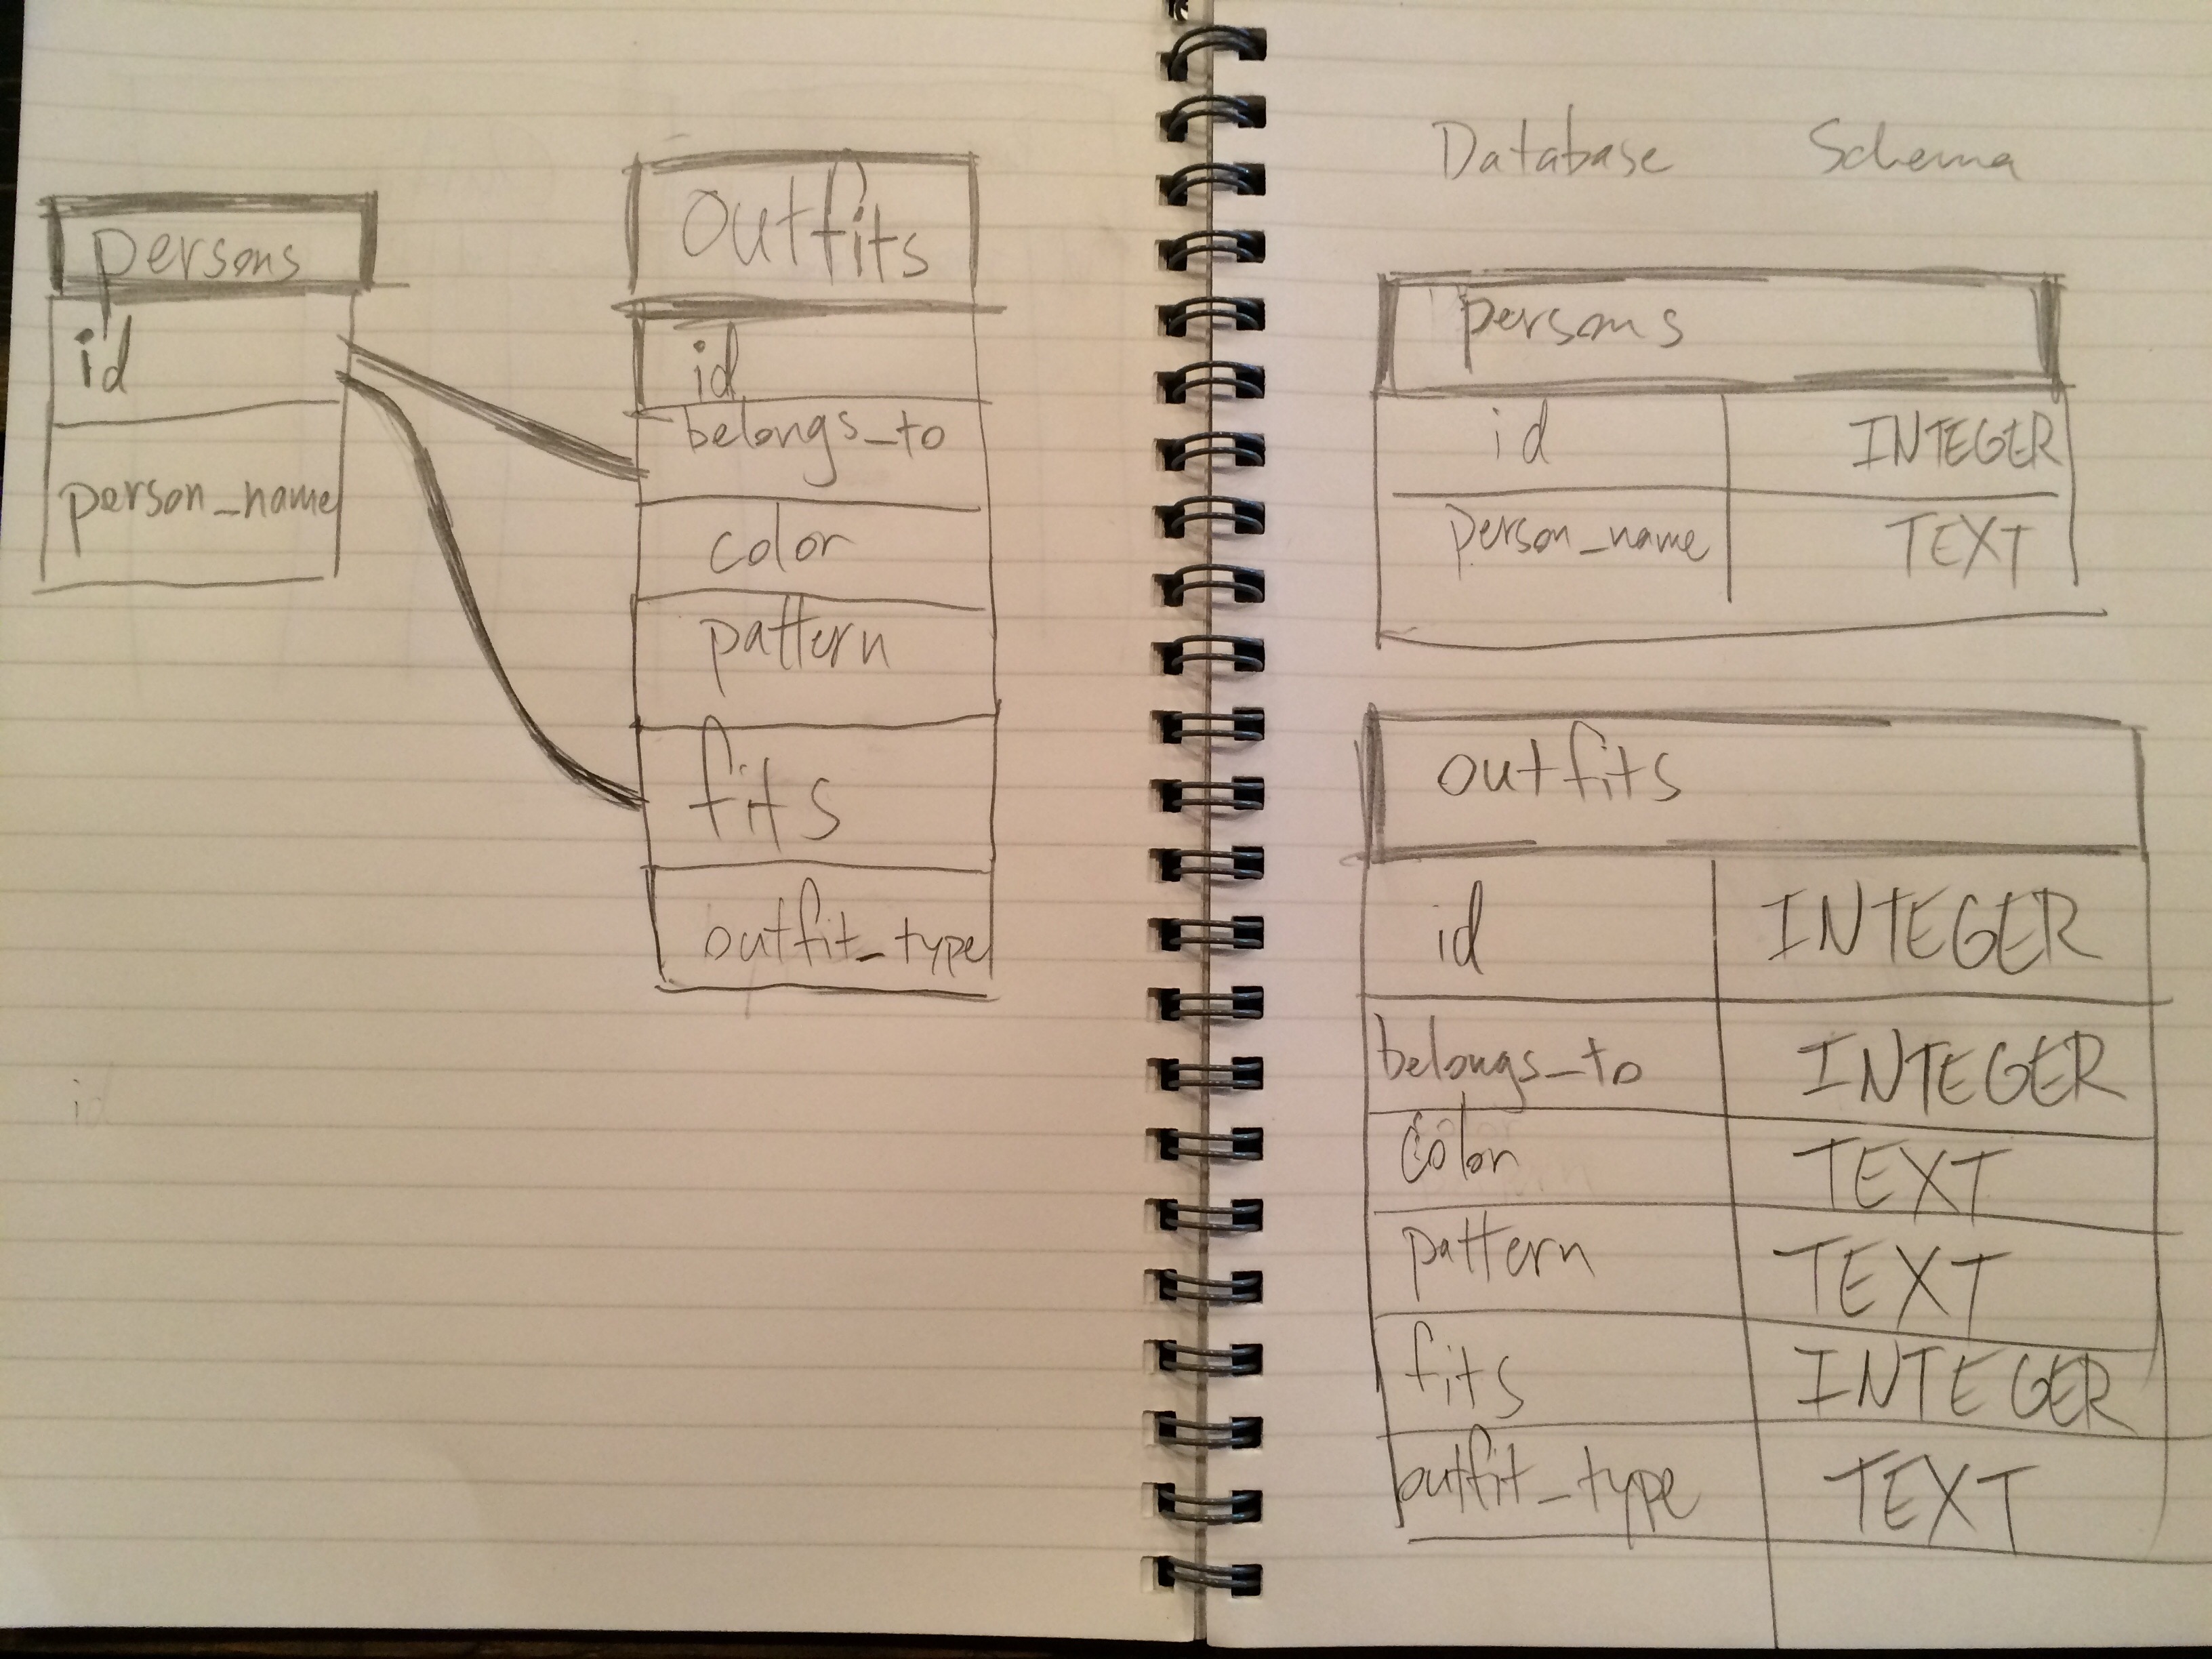 persons
id
person_name
outfits
id
belongs_to
color
pattern
fits
outfit_type
id
Database Schema
persons
id INTEGER
person_name TEXT
outfits
id INTEGER
belongs_to INTEGER
color TEXT
pattern TEXT
fits INTEGER
outfit_type TEXT